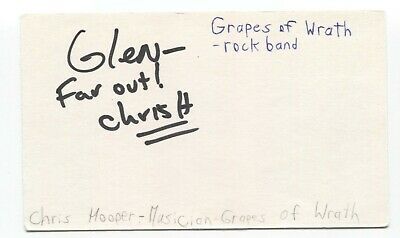 Glen-
Far out!
Chris H
Grapes of Wrath
-rock band
Chris Hooper-Musician-Grapes of Wrath